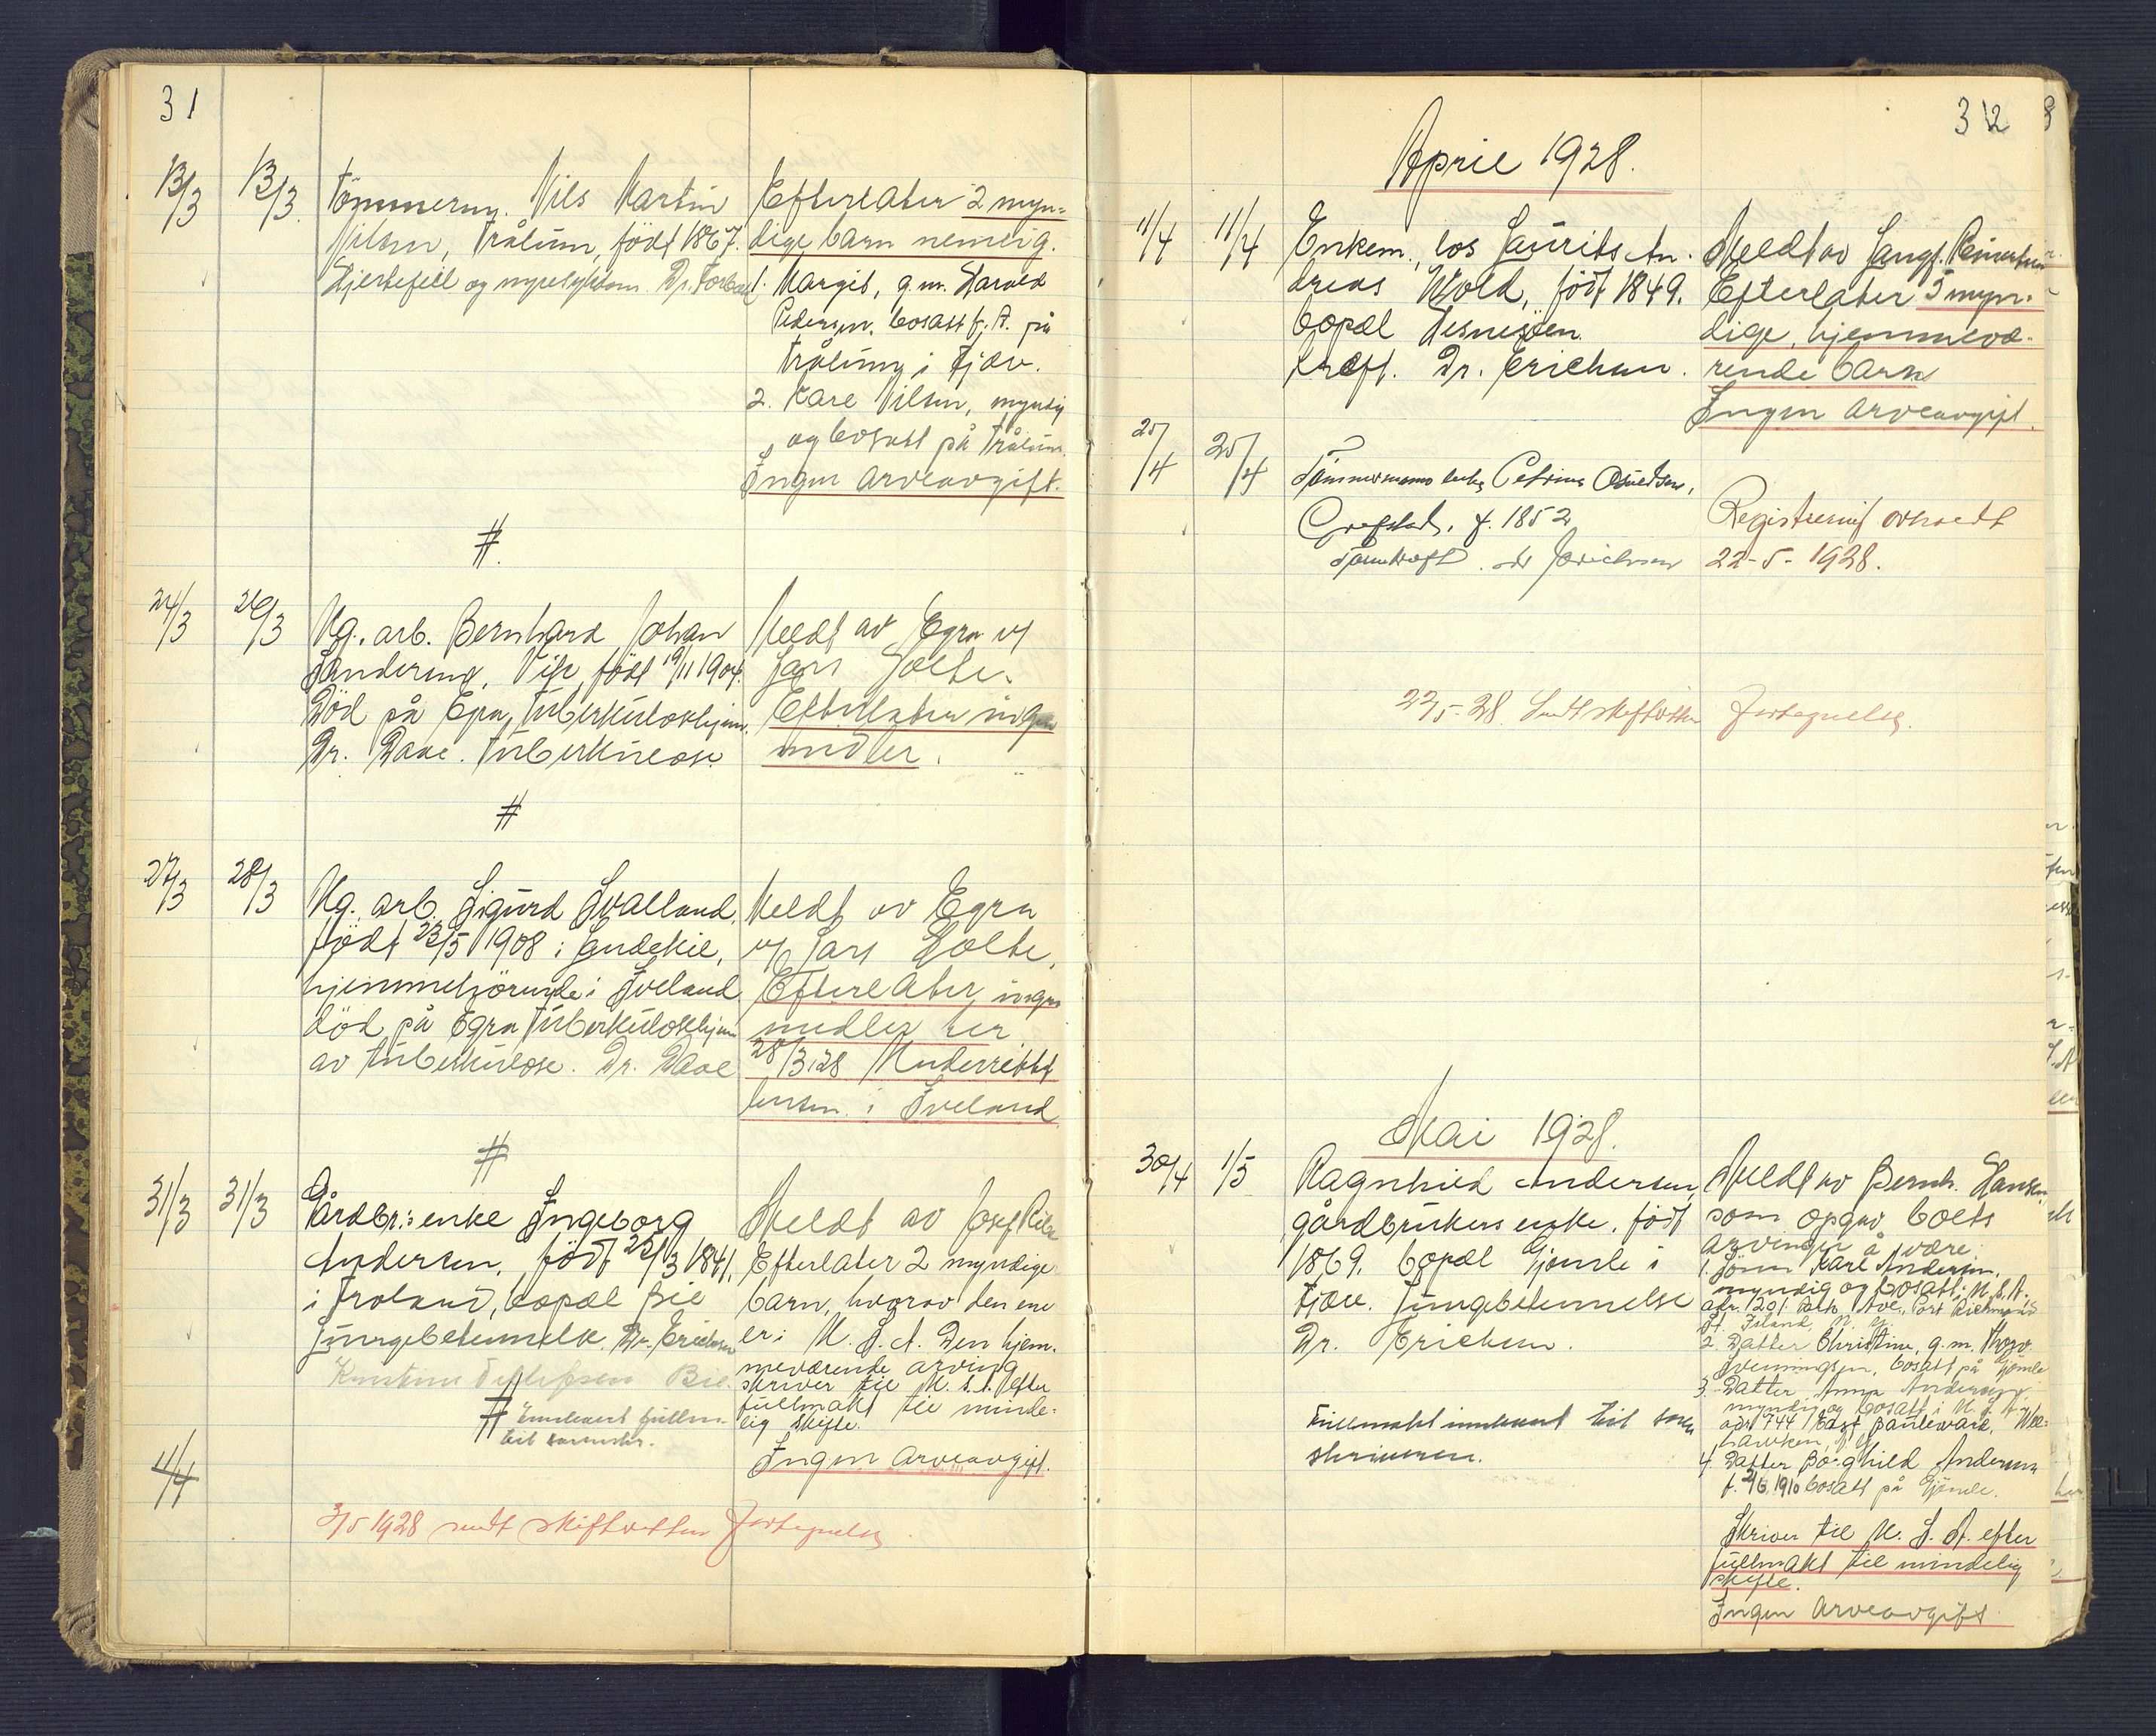 31
13/3 13/3 Tömmerm. Nils Martin
Nilsen, Trålum, födt 1867.
Hjertefeil og nyresykdom. Dr.
Efterlater 2 myn-
dige barn nemlig.
1. Margit, g.m. Harald
Pedersen, bosatt f. t. på
Trålum i Fjære.
2. Kåre Nilsen, myndig
og bosatt på Trålum.
Ingen arveavgift.
#
24/3 26/3 Ug. arb. Bernhard Johan
Gundersen, Vik, födt 19/11 1904.
Död på Egra Tuberkulosehjem.
Dr. Dave. Tuberkulose.
Meldt av Egra v/
Lars Holte.
Efterlater ingen
midler.
#
27/3 28/3 Ug. arb. Sigurd Svalland,
födt 23/5 1908 i
hjemmehörende i Iveland
död på Egra Tuberkulosehjem
av tuberkulose. Dr. Dave
Meldt av Egra
v/ Lars Holte.
Efterlater ingen
midler her
28/3 28 Underrettet
lensm. i Iveland
#
31/3 31/3 Gårdbr:s enke Ingeborg
Andersen, födt 25/3 1841,
i Froland, bopæl Bie
Lungebetennelse. Dr. Erichsen
Bie
#
Innlevert fullm.
til sorenskr.
Meldt av Josef
Efterlater 2 myndige
barn, hvorav den ene
er i U. S. A. Den hjem-
meværende arving
skriver til U. S. A. efter
fullmakt til minde-
lig skifte.
Ingen arveavgift.
4/4
3/5 1928 sendt skifteretten Fortegnelse.
32
April 1928.
11/4 11/4 Enkem., los Laurits An-
dreas Wold, födt 1849.
bopæl Hesnesöen.
kreft. Dr. Erichsen.
Meldt av Langf. Reinertsen
Efterlater 5 myn-
dige, hjemmevæ-
rende barn
Ingen arveavgift.
25/4 25/4 Tömmermanns enke Petrine Osuldsen,
Grefstad, f. 1852
Tarmkreft. dr Erichsen
Registrering avholdt
22-5-1928.
22/5-28. Sendt skifteretten Fortegnelse.
Mai 1928.
30/4 1/5 Ragnhild Andersen,
gårdbrukers enke, födt
1869, bopæl Gjömle i
Fjære. Lungebetennelse
Dr. Erichsen.
Fullmakt innlevert til soren
skriveren.
Meldt av Bernh. Hansen
som opgav boets
arvinger å være:
1. Sönn Karl Andersen,
myndig og bosatt i U. S. A.
adr. 201 Park Ave. Port Richmond
St. Island, N. Y.
2. Datter Christine, g.m. Thorv.
Svenningsen, bosatt på Gjömle
3. Datter Anna Andersen,
myndig og bosatt i U. S. A.
adr. 744 East Baulevard, Wee-
hawken, N. Y.
4. Datter Borghild Andersen
f. 2/6 1910 bosatt på Gjömle.
Skriver til U. S. A. efter
fullmakt til mindelig
skifte.
Ingen arveavgift